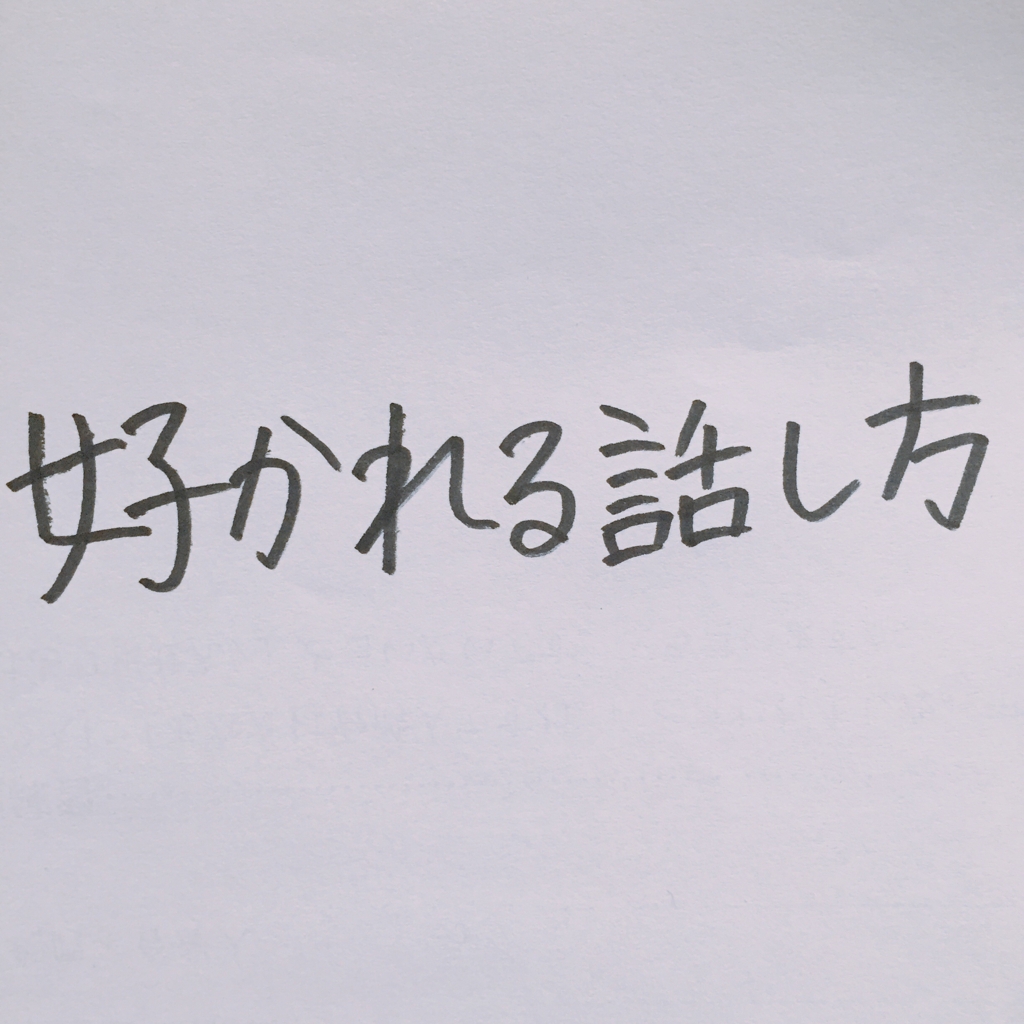 好かれる話し方